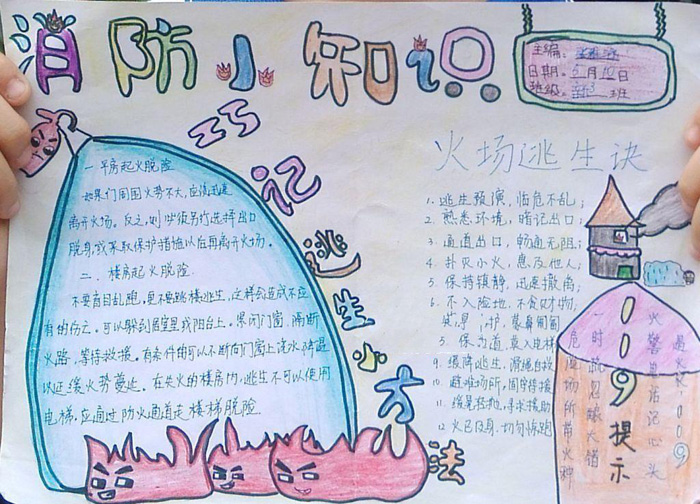 消防小知识
主编:
日期: 5月10日
班级: 班
巧记逃生小方法
一 平房起火脱险
如果门周围火势不大,应该迅速
离开火场。反之,则必须另行选择出口
脱身,或采取保护措施以后再离开火场。
二、楼房起火脱险
不要盲目乱跑,更不要跳楼逃生,这样会造成不应
有的伤亡。可以躲到居室里或阳台上。紧闭门窗,隔断
火路,等待救援。有条件的可以不断向门窗上浇水降温
以延缓火势蔓延。在失火的楼房内,逃生不可以使用
电梯,应通过防火通道走楼梯脱险
火场逃生诀
1. 逃生预演,临危不乱;
2. 熟悉环境,暗记出口;
3. 通道出口,畅通无阻;
4. 扑灭小火,惠及他人;
5. 保持镇静,迅速撤离;
6. 不入险地,不贪财物;
护,蒙鼻匍匐
道,莫入电梯
9. 缓降逃生,滑绳自救
10. 避难场所,固守待援
11. 缓晃轻抛,寻求援助
12. 火已及身,切勿惊跑
119提示
火警电话记心头
一时疏忽铸大错
危险场所带火种